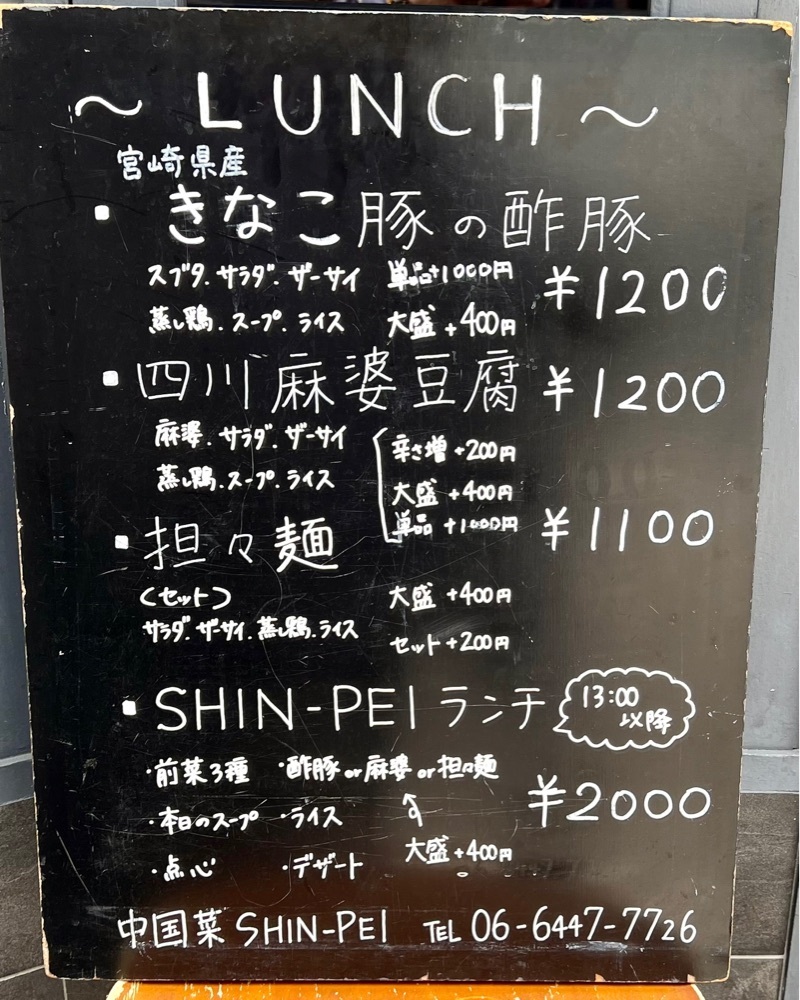 ～ LUNCH ～
宮崎県産
きなこ豚の酢豚
スブタ.サラダ.ザーサイ 単品+1000円 ¥1200
蒸し鶏.スープ.ライス 大盛+400円
四川麻婆豆腐 ¥1200
麻婆.サラダ.ザーサイ 辛さ増+200円
蒸し鶏.スープ.ライス 大盛+400円
単品+1000円
担々麺 ¥1100
〈セット〉 大盛+400円
サラダ.ザーサイ.蒸し鶏.ライス
セット+200円
SHIN-PEIランチ 13:00以降
・前菜3種 ・酢豚or麻婆or担々麺
¥2000
・本日のスープ ・ライス
大盛+400円
・点心 ・デザート
中国菜 SHIN-PEI TEL 06-6447-7726